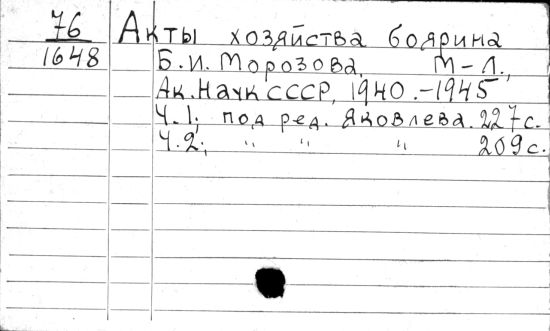 76 Акты хозяйства боярина
1648 Б.И. Морозова. М-Л.,
Ак. Наук СССР, 1940.-1945
Ч.1; под ред. Яковлева. 227с.
Ч.2; " " " 209с.